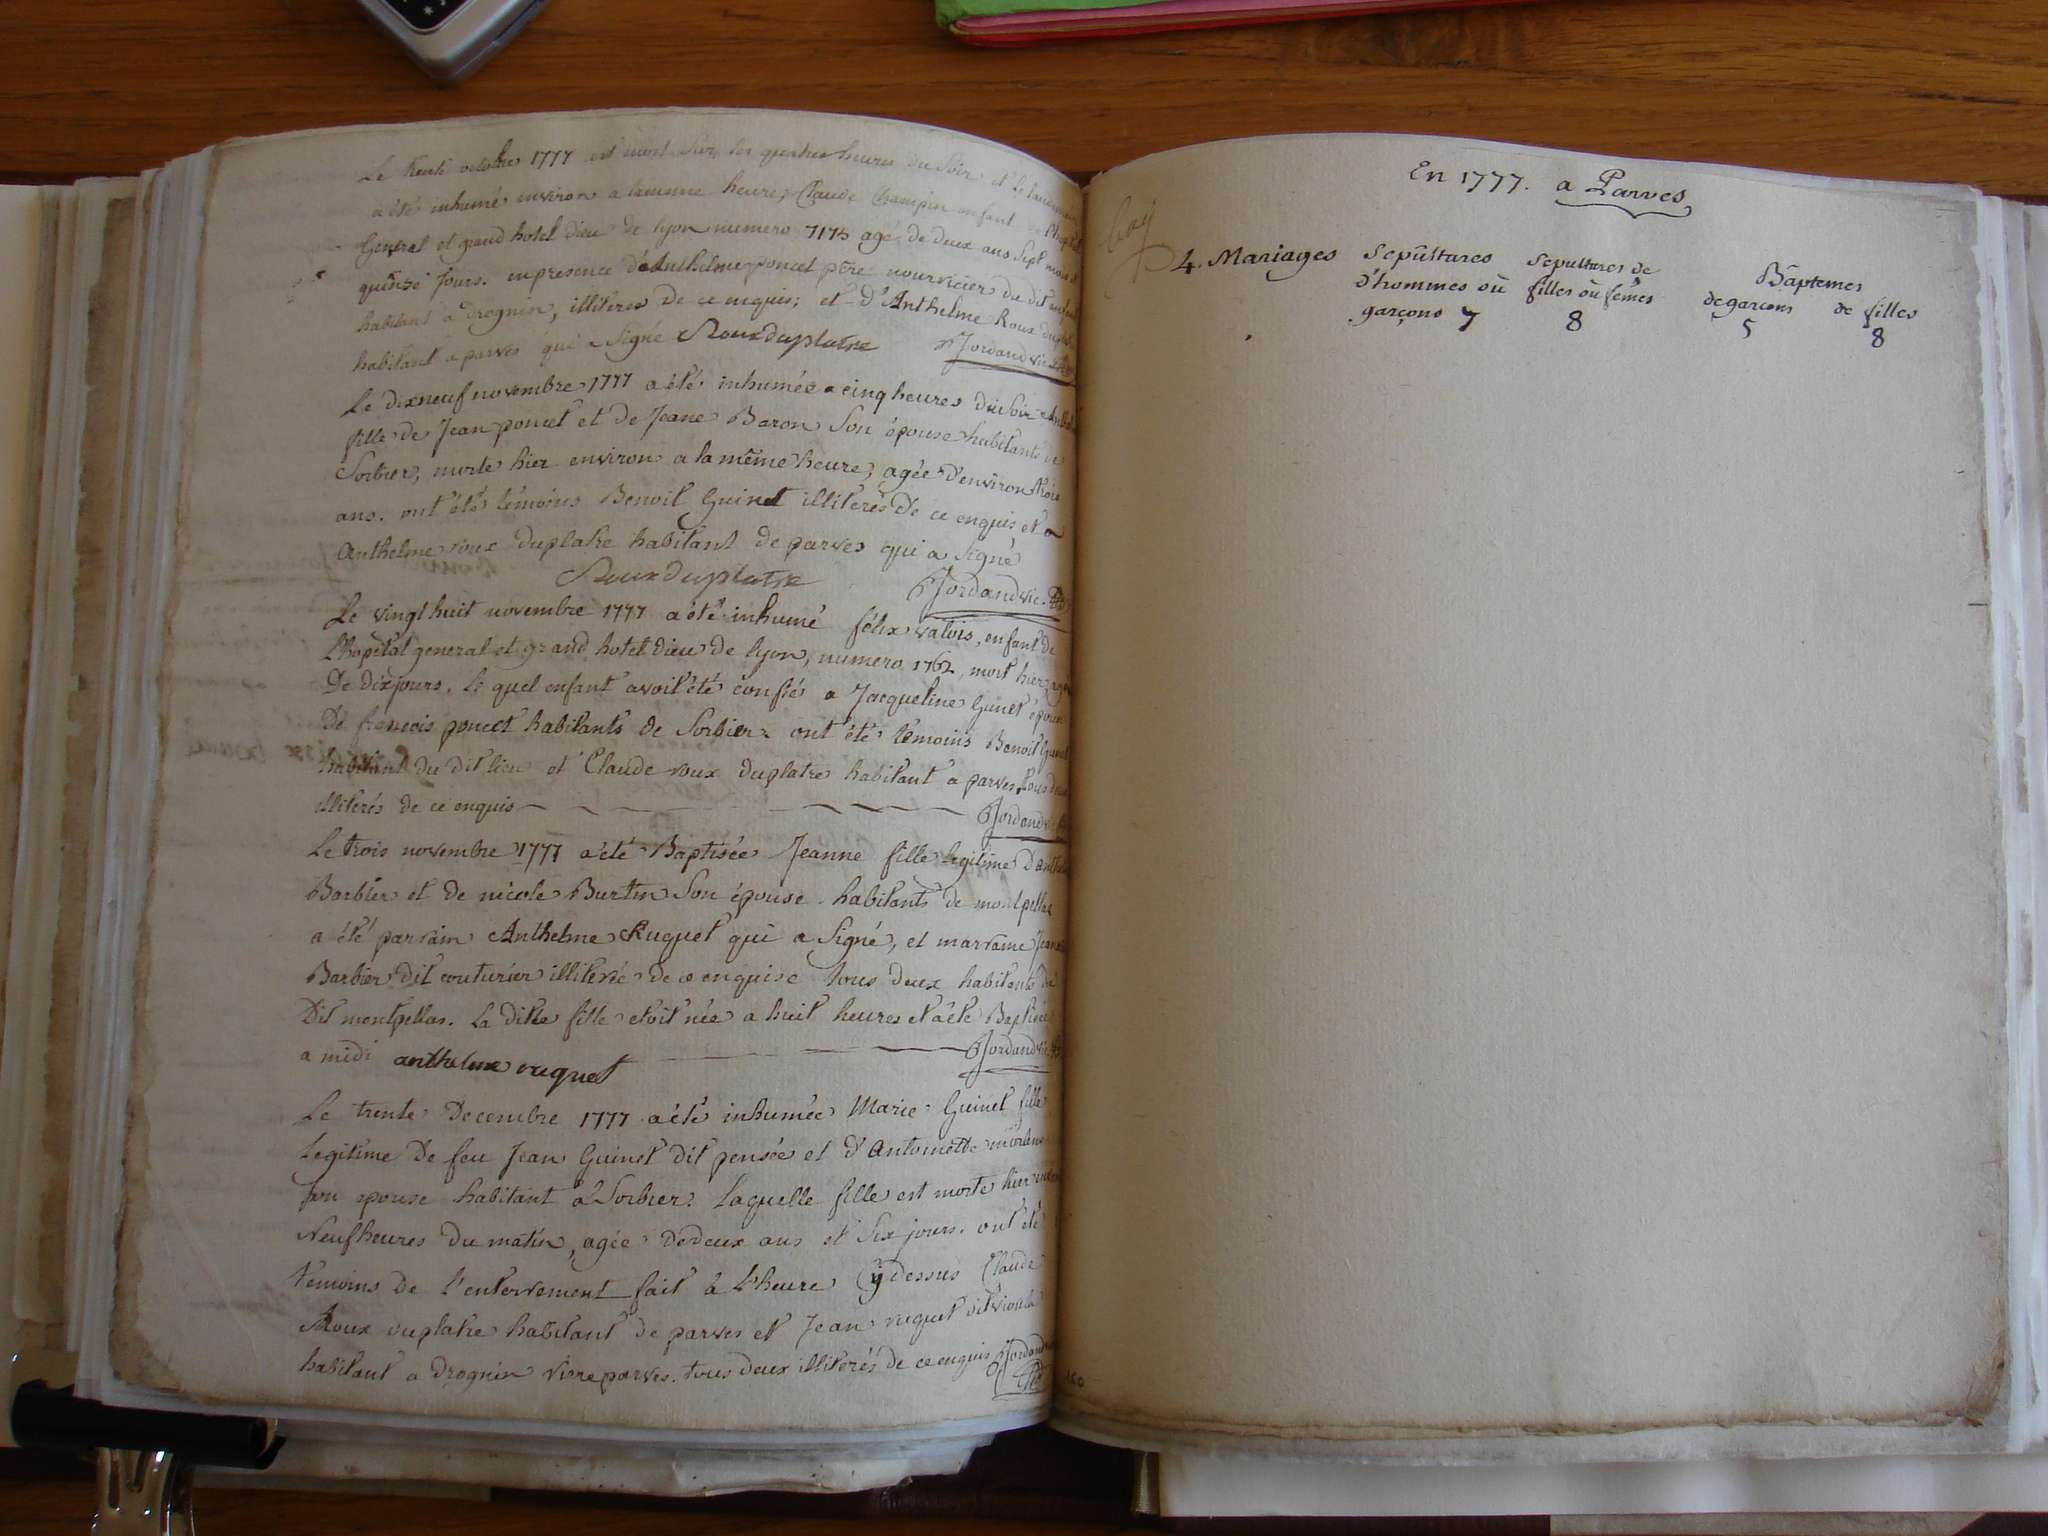 Le trente octobre 1777 est mort sur les quatres heures du soir et le
a été inhumé environ a la meme heure, Claude Champin enfant de l'hopital
General et grand hotel dieu de lyon numero 7175 agé de deux ans sept mois
quinze jours. en presence d'Anthelme poncet pere nourricier du dit enfant
habitant a Drognin, illiteré de ce enquis; et d'Anthelme Roux duplatre
habitant a parves qui a signé Rouxduplatre Jordand vic.
Le dixneuf novembre 1777 a été inhumée a cinq heures du soir
fille de Jean poncet et de Jeane Baron son épouse habitants de
Sorbier, morte hier environ a la même heure, agée d'environ trois
ans. ont été témoins Benoit Guinet illiterés de ce enquis et
Anthelme roux duplatre habitant de parves qui a signé
Rouxduplatre Jordand vic.
Le vingt huit novembre 1777 a été inhumé félix valois, enfant de
L'hopital general et grand hotel dieu de lyon, numero 1762, mort hier, agé
De dix jours. le quel enfant avoit été confiés a Jacqueline Guinet épouse
De francois poncet habitants de Sorbier ont été témoins Benoit Guinet
habitant du dit lieu et Claude roux duplatre habitant a parves tous deux
illiterés de ce enquis Jordand vic.
Le trois novembre 1777 a été Baptisée Jeanne fille legitime d'anthelme
Barbier et de nicole Burtin son épouse habitants de montpellas
a été parrain Anthelme Ruguet qui a signé, et marraine Jeanne
Barbier dit couturier illiterée de ce enquise tous deux habitants du
Dit montpellas. La ditte fille etoit née a huit heures et a été Baptisée
a midi anthelme ruguet Jordand vic.
Le trente Decembre 1777 a été inhumée Marie Guinet fille
Legitime De feu Jean Guinet dit pensée et d'Antoinette
son epouse habitant a Sorbier. Laquelle fille est morte hier
Neuf heures du matin, agée de deux ans et six jours. ont été
témoins de l'enterrement fait à l'heure cy dessus Claude
Roux duplatre habitant de parves et Jean ruguet dit
habitant a Drognin parves. tous deux illiterés de ce enquis Jordand
En 1777. a Parves
4. Mariages Sepultures Sepultures de Baptemes
d'hommes où filles où fem̃es de garcons de filles
garçons 7 8 5 8